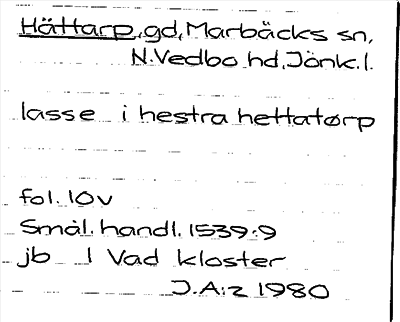 Hättarp, gd, Marbäcks sn,
N. Vedbo hd, Jönk. l.
lasse i hestra hettatørp
fol. 10v
Smål. handl. 1539:9
jb 1 Vad kloster
J.A:z 1980